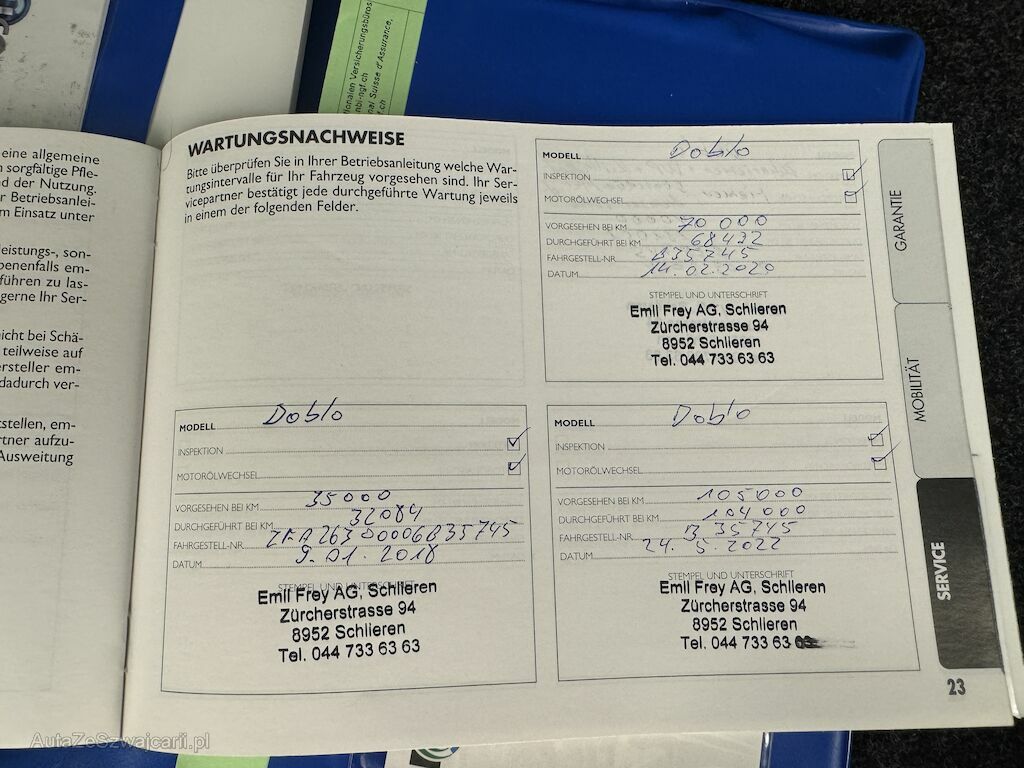 onalen Versicherungsbüros
nbi-ngf.ch
nal Suisse d'Assurance,
.ch
eine allgemeine
n sorgfältige Pfle-
nd der Nutzung.
r Betriebsanlei-
m Einsatz unter
leistungs-, son-
benenfalls em-
führen zu las-
gerne Ihr Ser-
nicht bei Schä-
teilweise auf
ersteller em-
dadurch ver-
tstellen, em-
rtner aufzu-
Ausweitung
WARTUNGSNACHWEISE
Bitte überprüfen Sie in Ihrer Betriebsanleitung welche War-
tungsintervalle für Ihr Fahrzeug vorgesehen sind. Ihr Ser-
vicepartner bestätigt jede durchgeführte Wartung jeweils
in einem der folgenden Felder.
MODELL Doblo
INSPEKTION
MOTORÖLWECHSEL
VORGESEHEN BEI KM 70 000
DURCHGEFÜHRT BEI KM 68432
FAHRGESTELL-NR. B35745
DATUM 14.02.2020
STEMPEL UND UNTERSCHRIFT
Emil Frey AG, Schlieren
Zürcherstrasse 94
8952 Schlieren
Tel. 044 733 63 63
MODELL Doblo
INSPEKTION
MOTORÖLWECHSEL
VORGESEHEN BEI KM 35000
DURCHGEFÜHRT BEI KM 32084
FAHRGESTELL-NR. ZFA26300006B35745
DATUM 9.01.2018
STEMPEL UND UNTERSCHRIFT
Emil Frey AG, Schlieren
Zürcherstrasse 94
8952 Schlieren
Tel. 044 733 63 63
MODELL Doblo
INSPEKTION
MOTORÖLWECHSEL
VORGESEHEN BEI KM 105000
DURCHGEFÜHRT BEI KM 104000
FAHRGESTELL-NR. B35745
DATUM 24.5.2022
STEMPEL UND UNTERSCHRIFT
Emil Frey AG, Schlieren
Zürcherstrasse 94
8952 Schlieren
Tel. 044 733 63 63
GARANTIE
MOBILITÄT
SERVICE
23
AutaZeSzwajcarii.pl